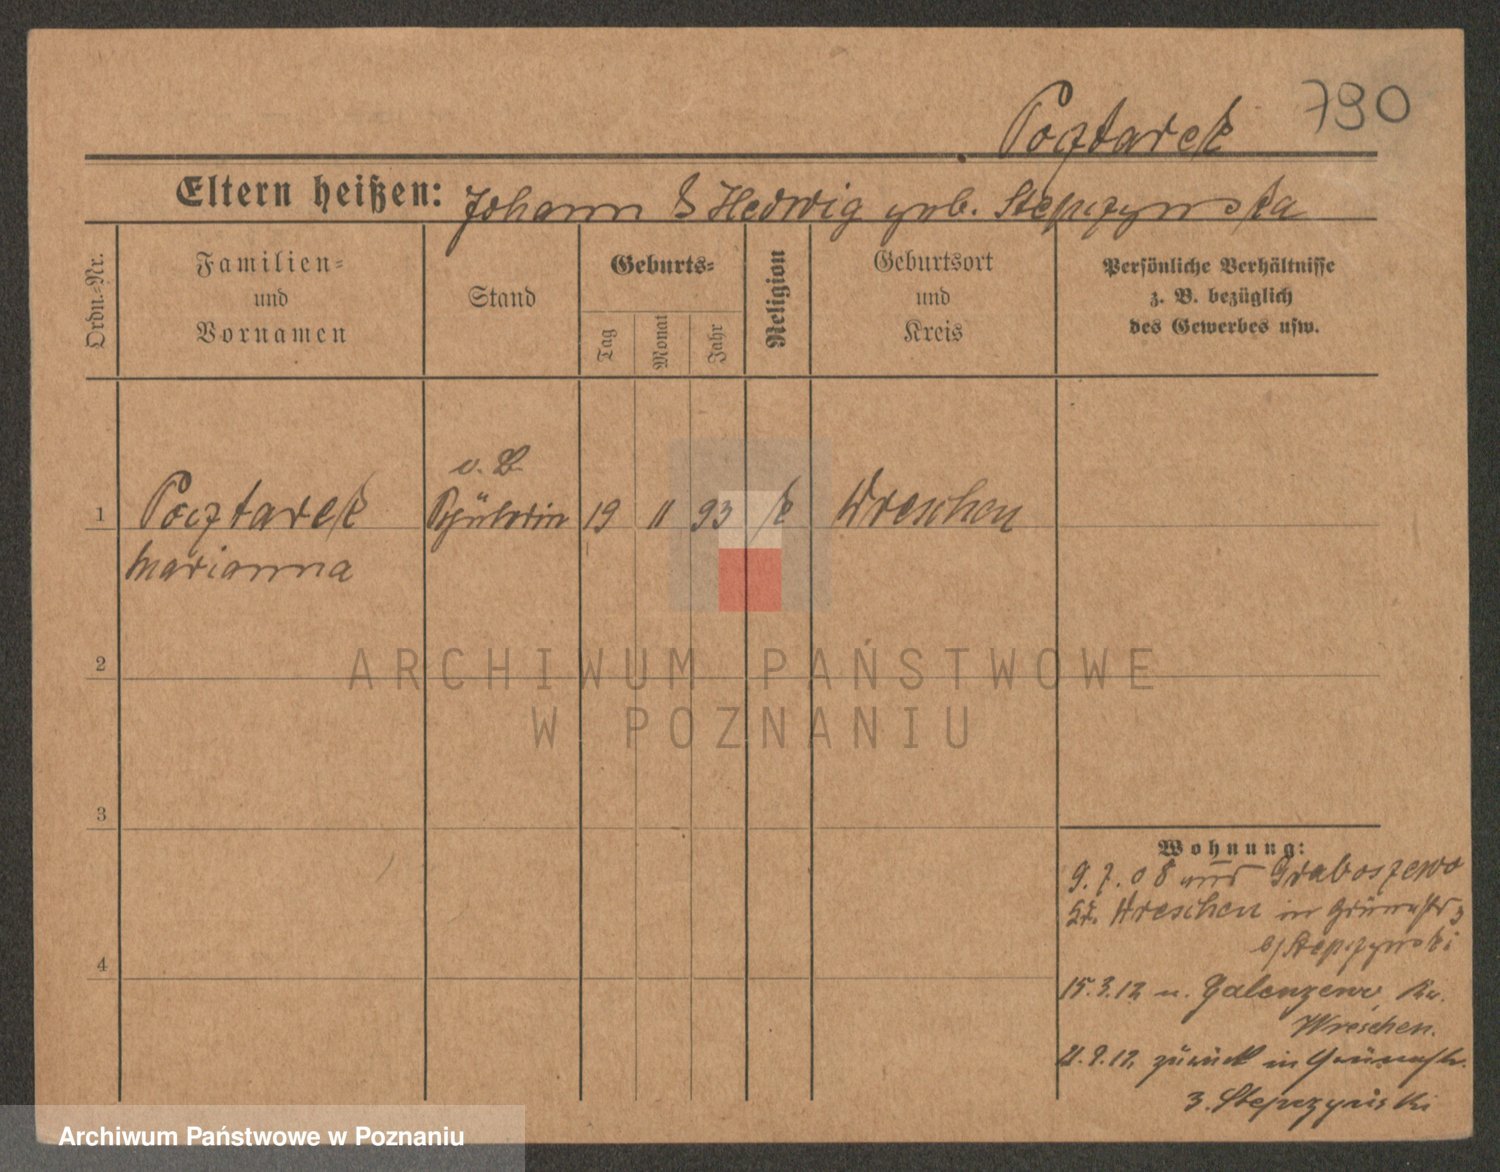 790
Pocztarek
Eltern heißen: Johann & Hedwig geb. Stepczynska
Ordn.-Nr.
Familien- und Vornamen
Stand
Geburts-
Tag
Monat
Jahr
Religion
Geburtsort und Kreis
Persönliche Verhältnisse
z. B. bezüglich
des Gewerbes usw.
1 Pocztarek Schülerin 19 11 93 k Wreschen
Marianna
2
3
4
Wohnung:
9.7.08 aus Graboszewo
Kr. Wreschen in Grünestr 3
b/Stepczynski
15.3.12 n. Galenzewo Kr.
Wreschen.
zurück in Grünestr.
3. Stepczynski
ARCHIWUM PAŃSTWOWE
W POZNANIU
Archiwum Państwowe w Poznaniu